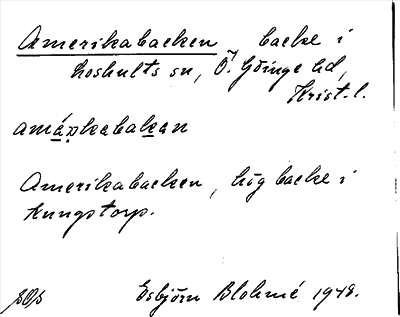 Amerikabacken, backe i
Loshults sn, Ö. Göinge hd,
Krist. l.
amápkabakan
Amerikabacken, hög backe i
Kungstorp.
Esbjörn Blohmé 1948.